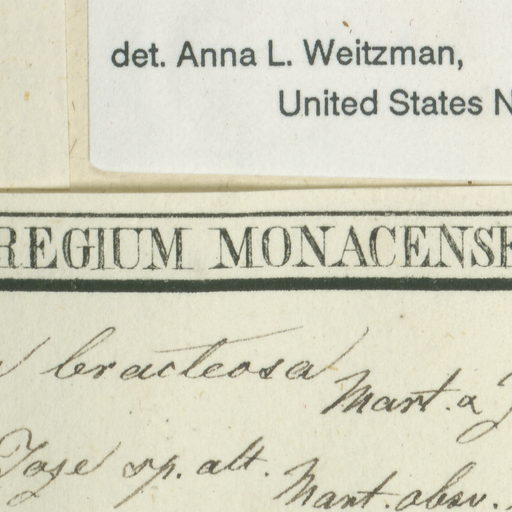 det. Anna L. Weitzman,
United States N
REGIUM MONACENSE
bracteosa
Mart. a
sp. alt.
Mart. obsv.